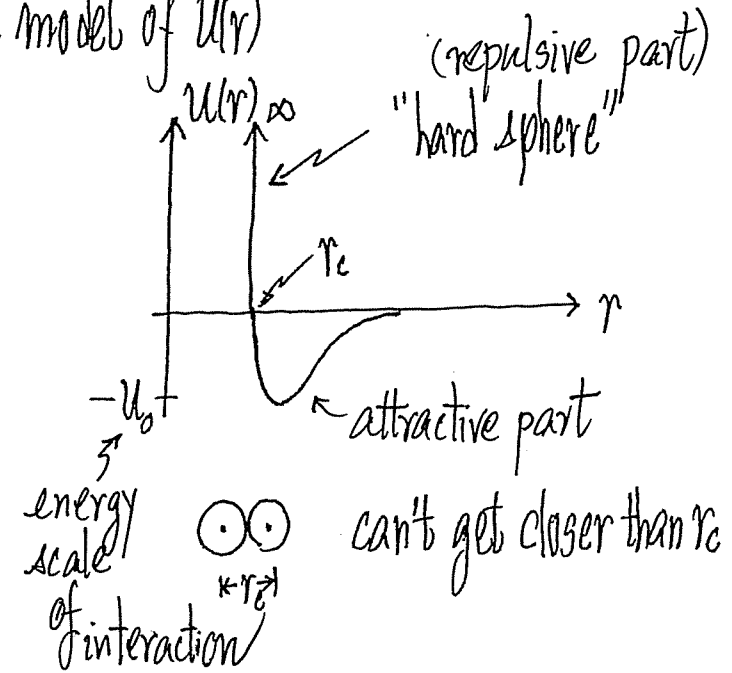 model of U(r)
(repulsive part)
"hard sphere"
U(r) ∞
r_c
r
-U_0
attractive part
energy
scale
of interaction
can't get closer than r_c
r_c